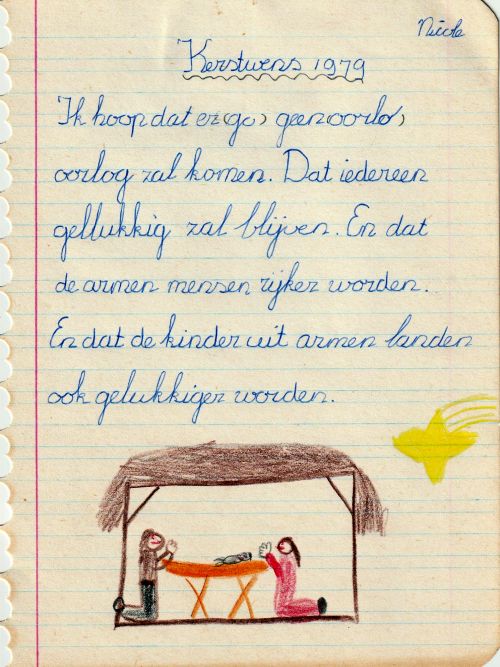 Nicole
Kerstwens 1979
Ik hoop dat er(go) geen(oorlo)
oorlog zal komen. Dat iedereen
gellukkig zal blijven. En dat
de armen mensen rijker worden.
En dat de kinder uit armen landen
ook gelukkiger worden.